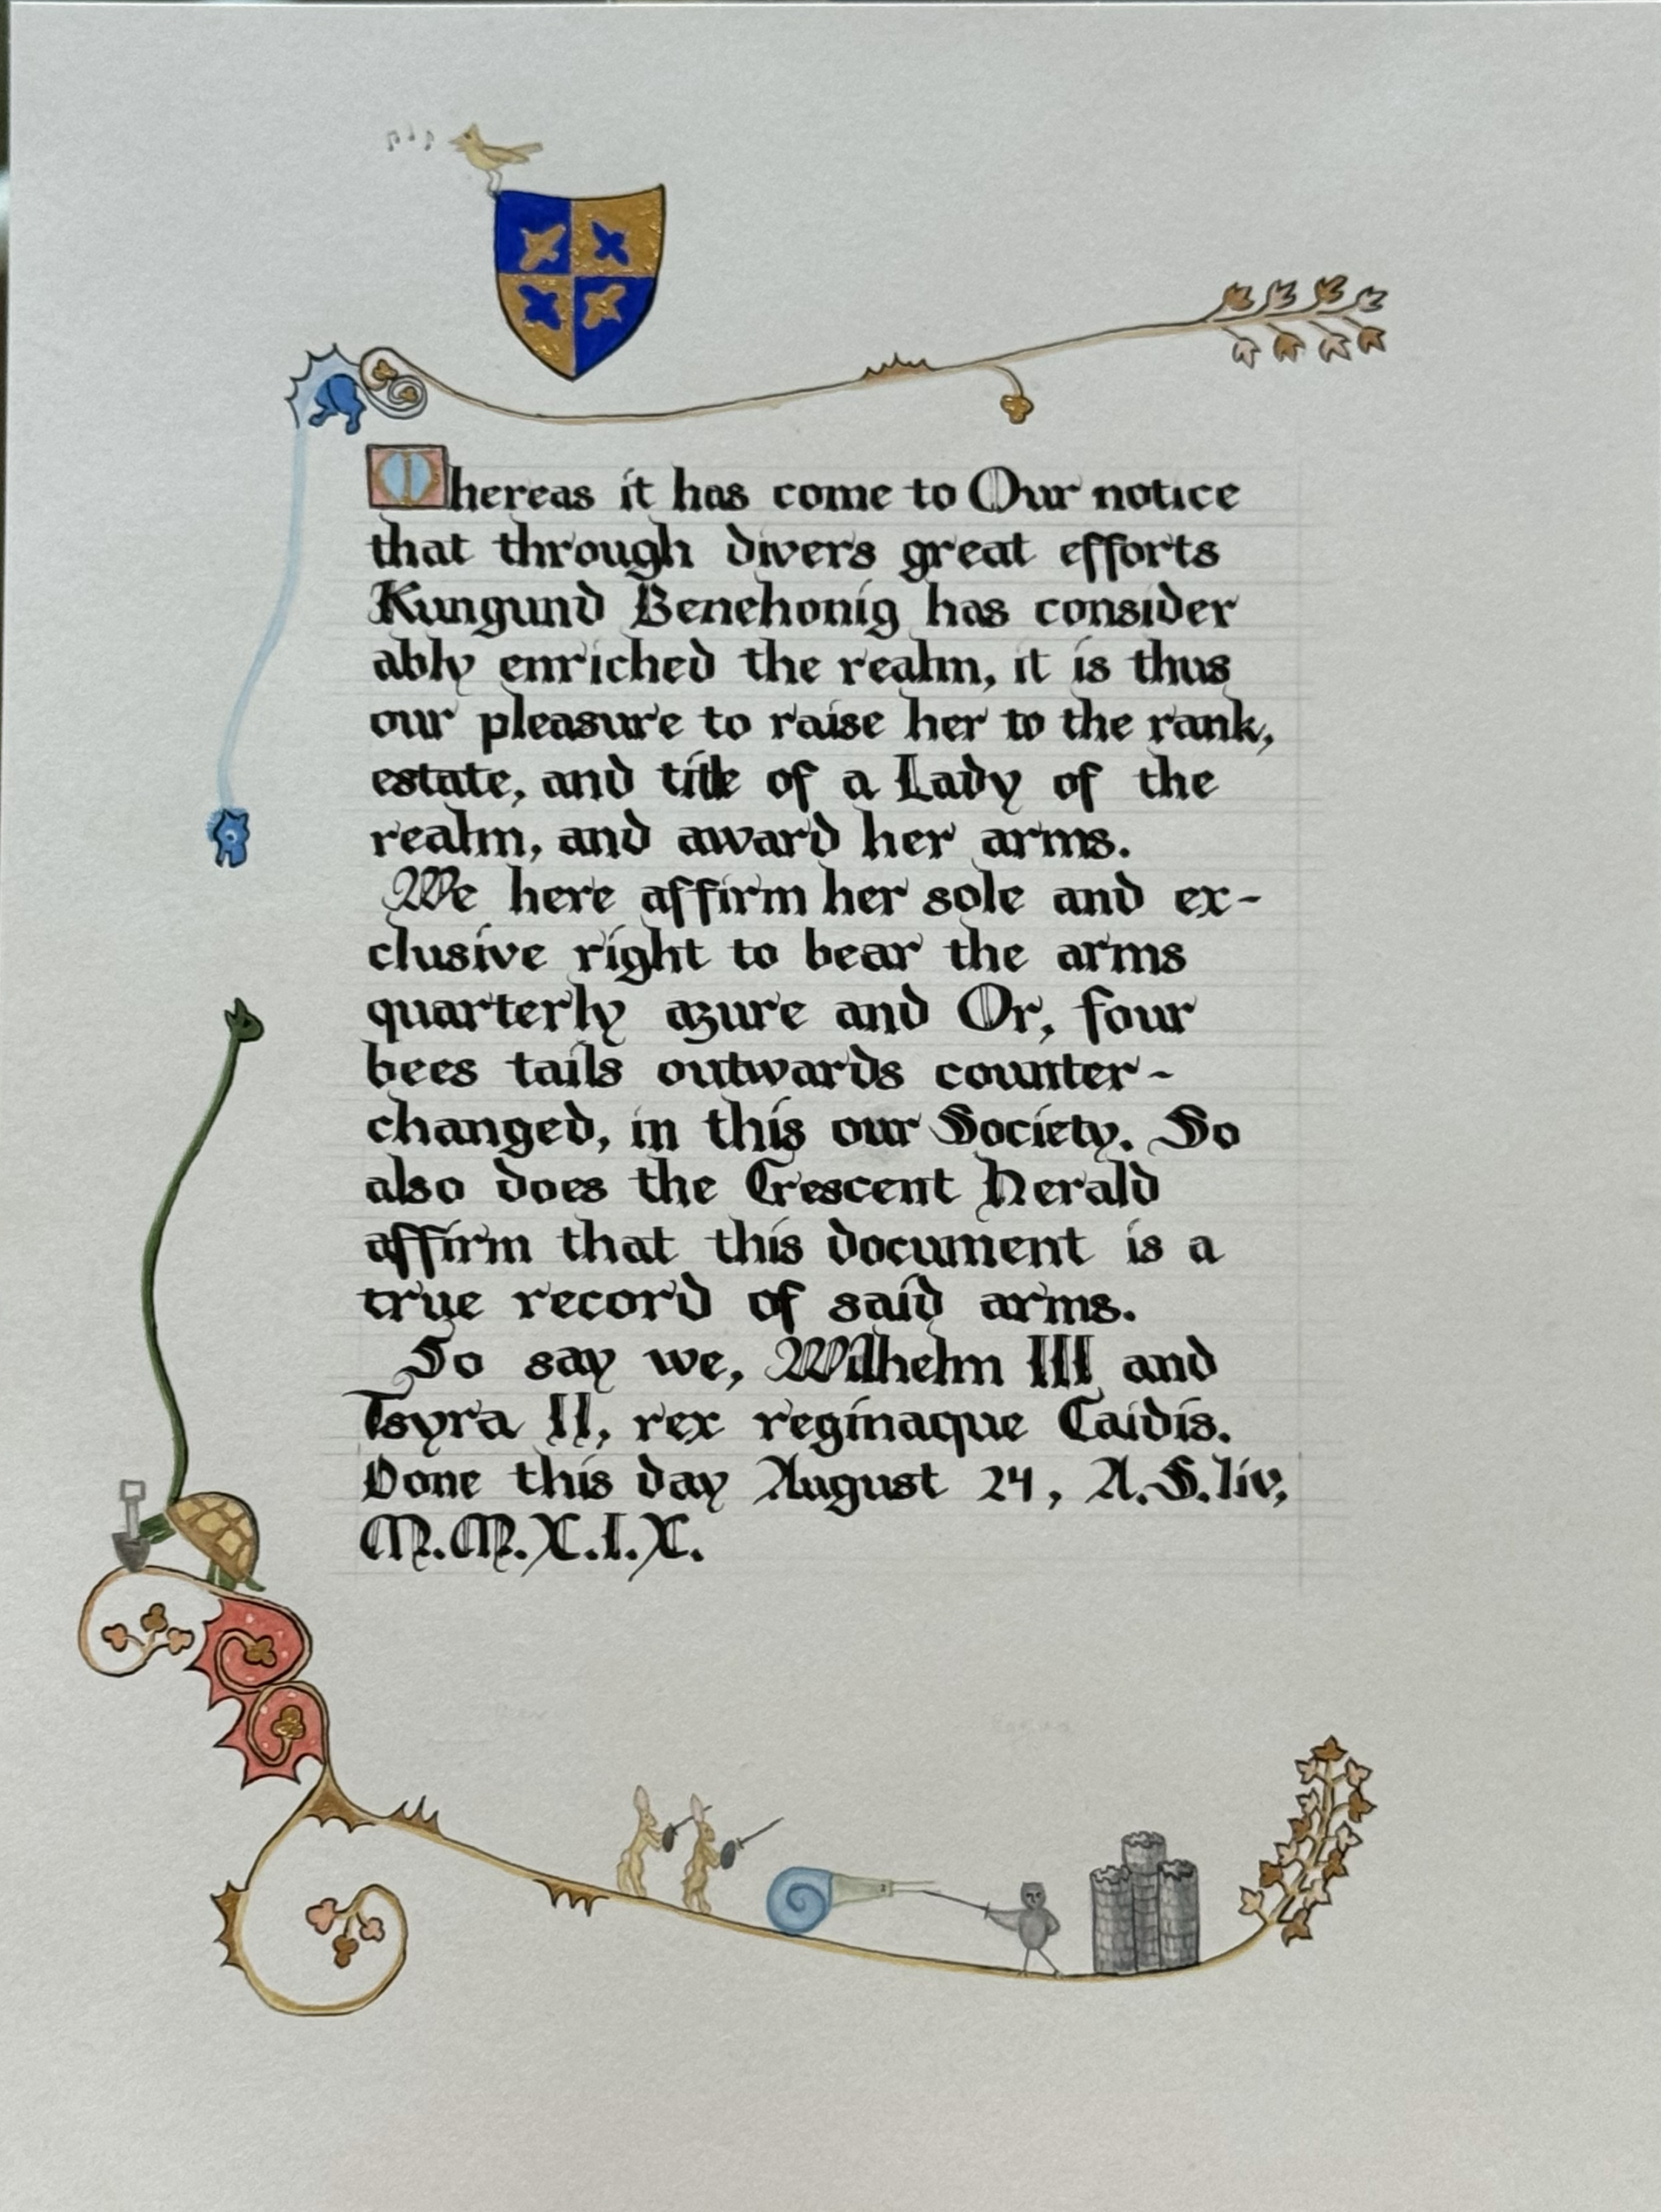 Whereas it has come to Our notice
that through divers great efforts
Kungund Benehonig has consider
ably enriched the realm, it is thus
our pleasure to raise her to the rank,
estate, and title of a Lady of the
realm, and award her arms.
We here affirm her sole and ex-
clusive right to bear the arms
quarterly azure and Or, four
bees tails outwards counter-
changed, in this our Society. So
also does the Crescent Herald
affirm that this document is a
true record of said arms.
So say we, Wilhelm III and
Tsyra II, rex reginaque Caidis.
Done this day August 24, A.S. liv,
M.M.X.I.X.